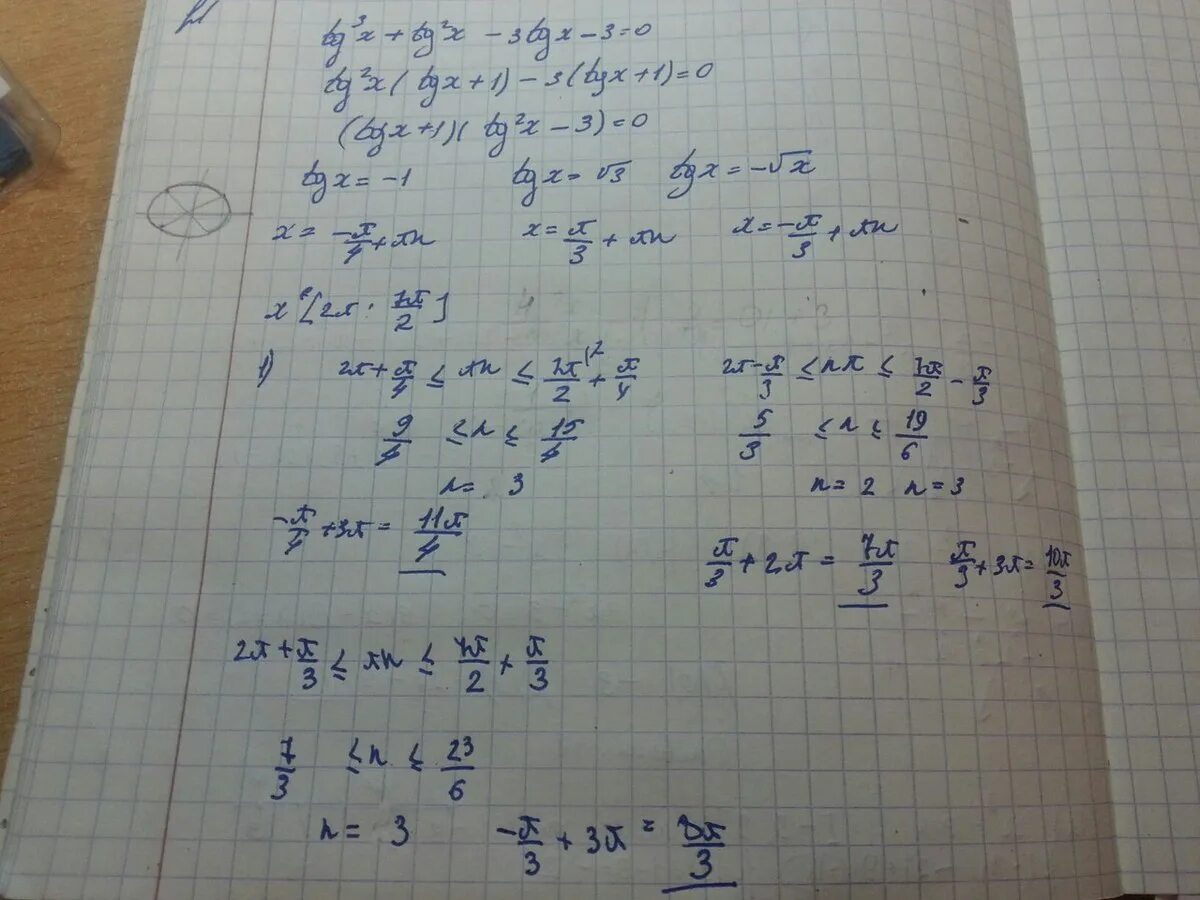 tg³x + tg²x - 3tgx - 3 = 0
tg²x (tgx + 1) - 3(tgx + 1) = 0
(tgx + 1)(tg²x - 3) = 0
tgx = -1 tgx = √3 tgx = -√x
x = -π/4 + πn x = π/3 + πn x = -π/3 + πn
x [2π; 7π/2]
1) 2π + π/4 ≤ πn ≤ 7π/2 + π/4 2π - π/3 ≤ nπ ≤ 7π/2 - π/3
9/4 ≤ n ≤ 15/4 5/3 ≤ n ≤ 19/6
n = 3 n = 2 n = 3
-π/4 + 3π = 11π/4 π/3 + 2π = 7π/3 π/3 + 3π = 10π/3
2π + π/3 ≤ πn ≤ 7π/2 + π/3
7/3 ≤ n ≤ 23/6
n = 3 -π/3 + 3π = 8π/3